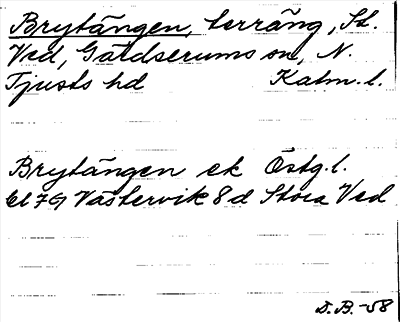 Brytängen, terräng, St.
Ved, Gärdserums sn, N.
Tjusts hd Kalm. l.
Brytängen ek Östg. l.
bl 7G Västervik 8 d Stora Ved
D.B. -58